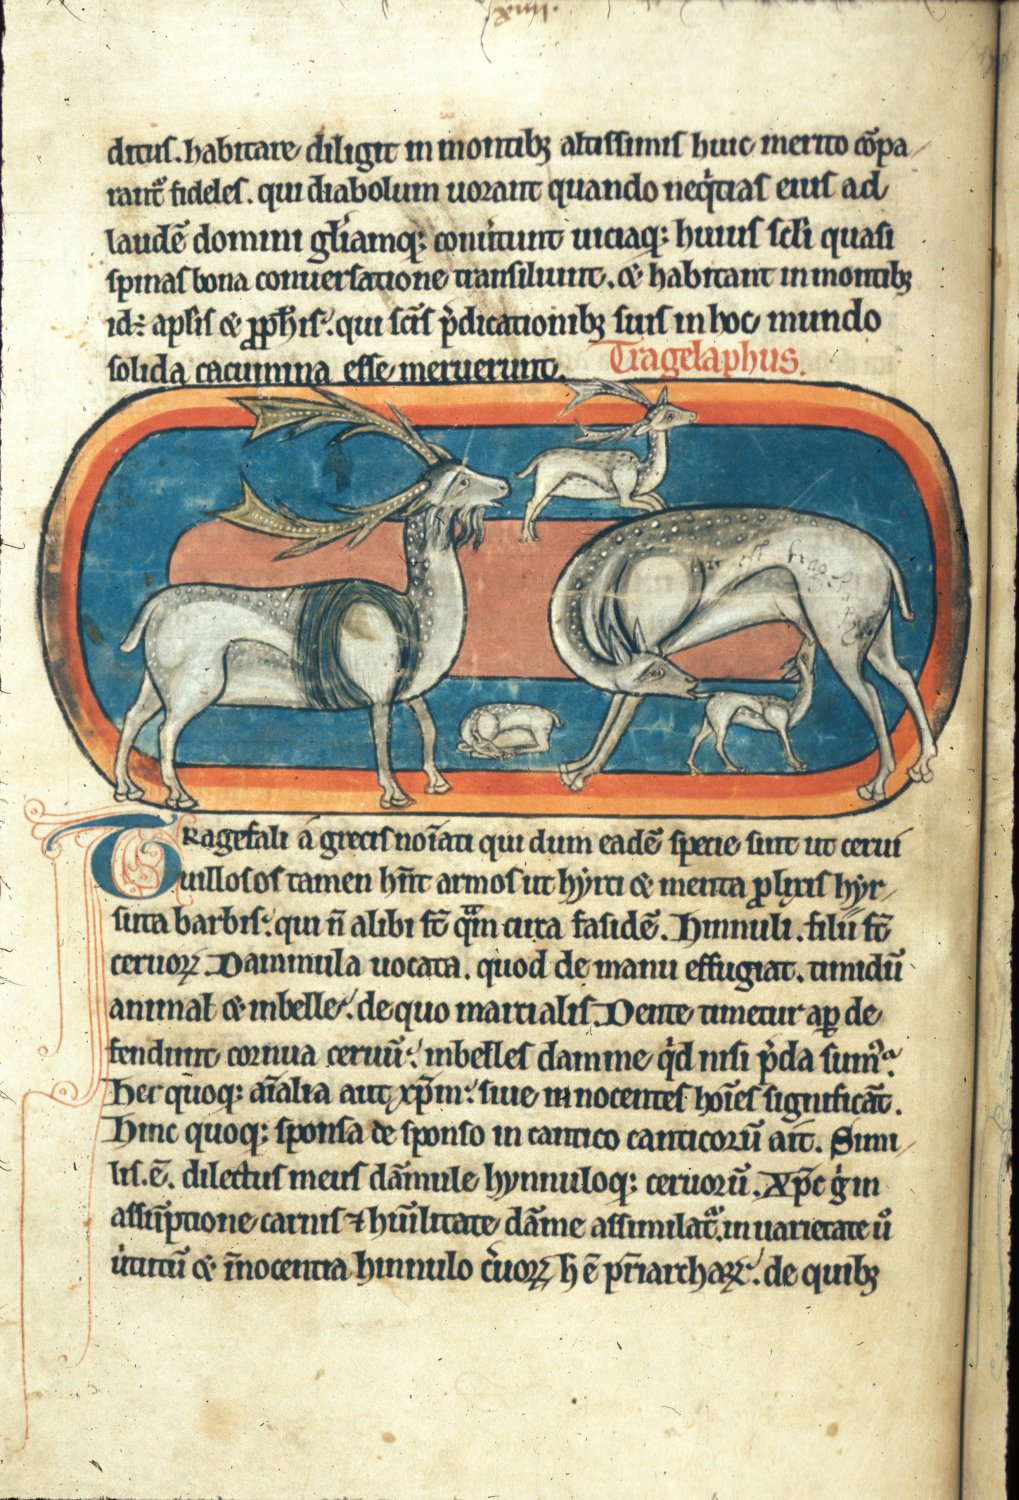 .xiiii.
ditus. habitare diligit in montibꝫ altissimis huic merito cōpa
rant᷑ fideles. qui diabolum uorant quando neq̇tias eius ad
laudē domini gl̇iamqꝫ conu̇tunt uiciaqꝫ huius scl̇i quasi
spinas bona conuersatione transiliunt. & habitant in montibꝫ
id÷ apl̄is & ꝓph̄is. qui sc̄is p̄dicationibꝫ suis in hoc mundo
solida cacumina esse meruerunt. Tragelaphus.
TRagefali á grecis noīati qui dum eadē specie sunt ut cerui
uillosos tamen hn̄t armos ut hẏrci & menta ꝓlixis hẏr
suta barbis. qui n̄ alibi st̄ qͣm circa fasidē. Hinnuli. filii st̄
ceruoꝝ. Dammula uocata. quod de manu effugiat. timidū
animal & inbelle. de quo martialis. Dente timetur aꝑ de
fendunt cornua ceruū. inbelles damme q̇d nisi p̄da sumꝰ.
Hec quoqꝫ aīalia aut xp̄m. siue innocentes hoīes significāt.
Hinc quoqꝫ sponsa de sponso in cantico canticorū ait. Simi
lis.ē. dilectus meus dāmule hynnuloqꝫ ceruorū. Xp̄c ġ in
assūptione carnis ⁊ hūilitate dāme assimilat᷑. in uarietate u᷑o
u̇tutū & īnocentia hinnulo c̓uoꝝ h ē pr̄iarchaꝝ. de quibꝫ